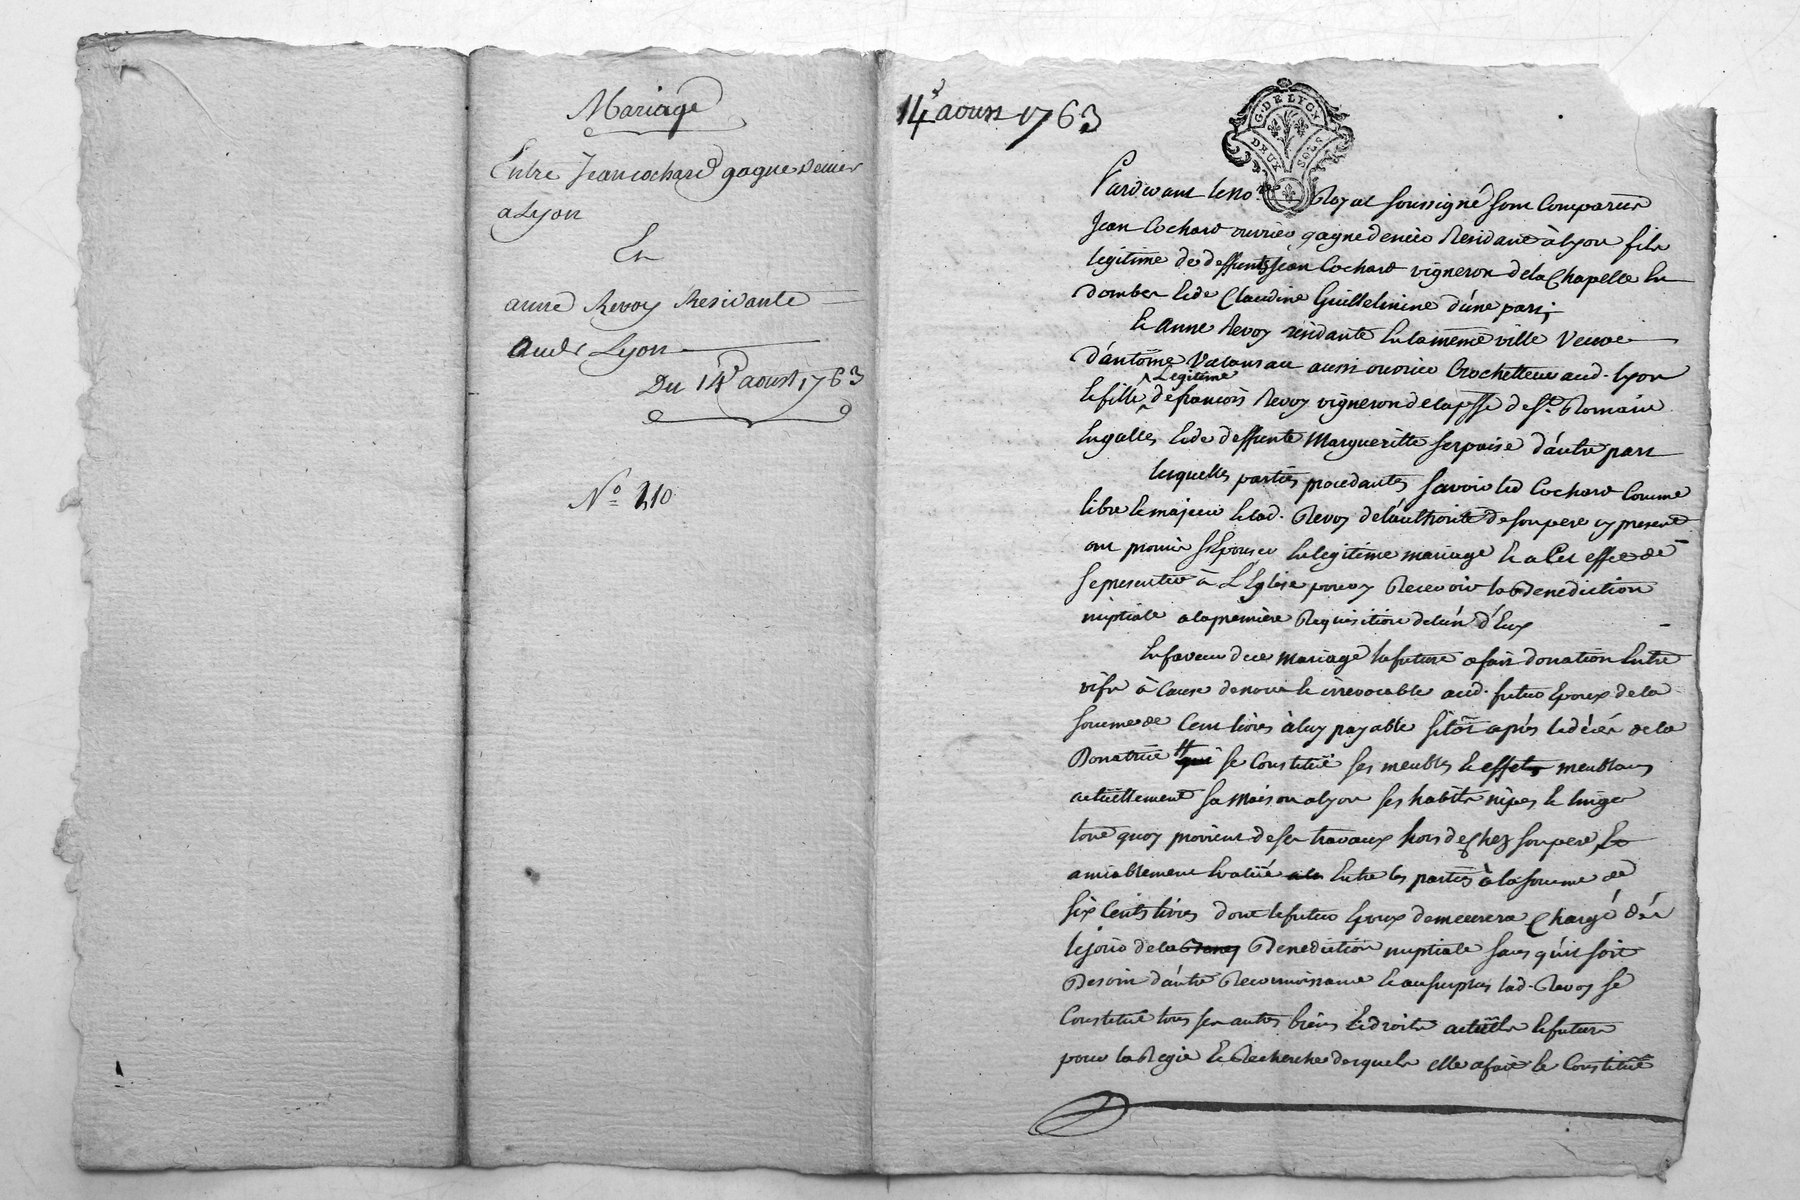 Mariage
Entre Jean cochard gagne denier
a Lyon
Et
anne Revoy Residante
aud. Lyon
Du 14e aoust 1763
No 110
14e aoust 1763
G. DE LYON
DEUX SOLS
Pardevant le no.re Royal soussigné sont Comparus
Jean Cochard ouvrier gagnedenier Residant à Lyon fils
legitime de deffunts Jean Cochard vigneron de la Chapelle en
dombes et de Claudine Guillelmine d'une part;
Et Anne Revoy residante en la même ville Veuve
d'antoine aussi ouvrier Crochetteur aud. Lyon
Legitime
et fille de francois Revoy vigneron de la psse de St. Romain
en galles, et de deffunte Margueritte Serpaise d'autre part
lesquelles parties procedantes savoir led Cochard Comme
libre et majeur et lad. Revoy de l'authorité de son pere cy present
ont promis s'Epouser en legitime mariage et a Cet effet de
se presenter à L'Eglise pour y Recevoir la Benediction
nuptiale a la première Requisition de l'un d'Eux
En faveur dece mariage la future a fait donation Entre
vifs à Cause de noce et irrevocable aud. futur Epoux de la
somme de Cent livres à luy payable sitôt après le décés de la
Donatrice qui se Constitüe ses meubles et effets meublans
actüellement sa maison a Lyon ses habits nipes et linge
tout quoy provient de ses travaux hors de Chez son pere, Et
amiablement Evalüé Entre les parties à la somme de
six Cents livres dont le futur Epoux demeurera Chargé dés
le jour de la Benediction nuptiale sans qu'il soit
Besoin d'autre Reconnoissance Et au surplus lad. Revoy se
Constitüe tous ses autres biens Et droits actüels et futurs
pour la Regie Et Recherche desquels elle a fait et Constitüé